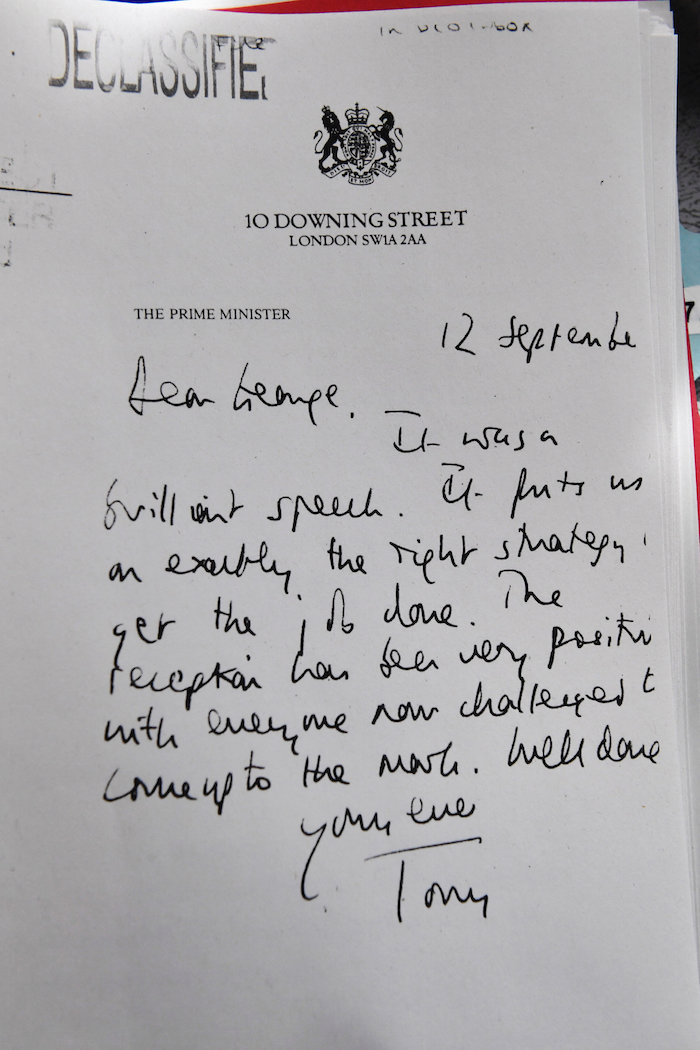 DECLASSIFIE
10 DOWNING STREET
LONDON SW1A 2AA
THE PRIME MINISTER
12 Septembe
Dear George,
It was a
brilliant speech. It puts us
on exactly the right strategy
get the job done. The
reception has been very positiv
with everyone now challenged t
come up to the mark. Well done
yours ever
Tony